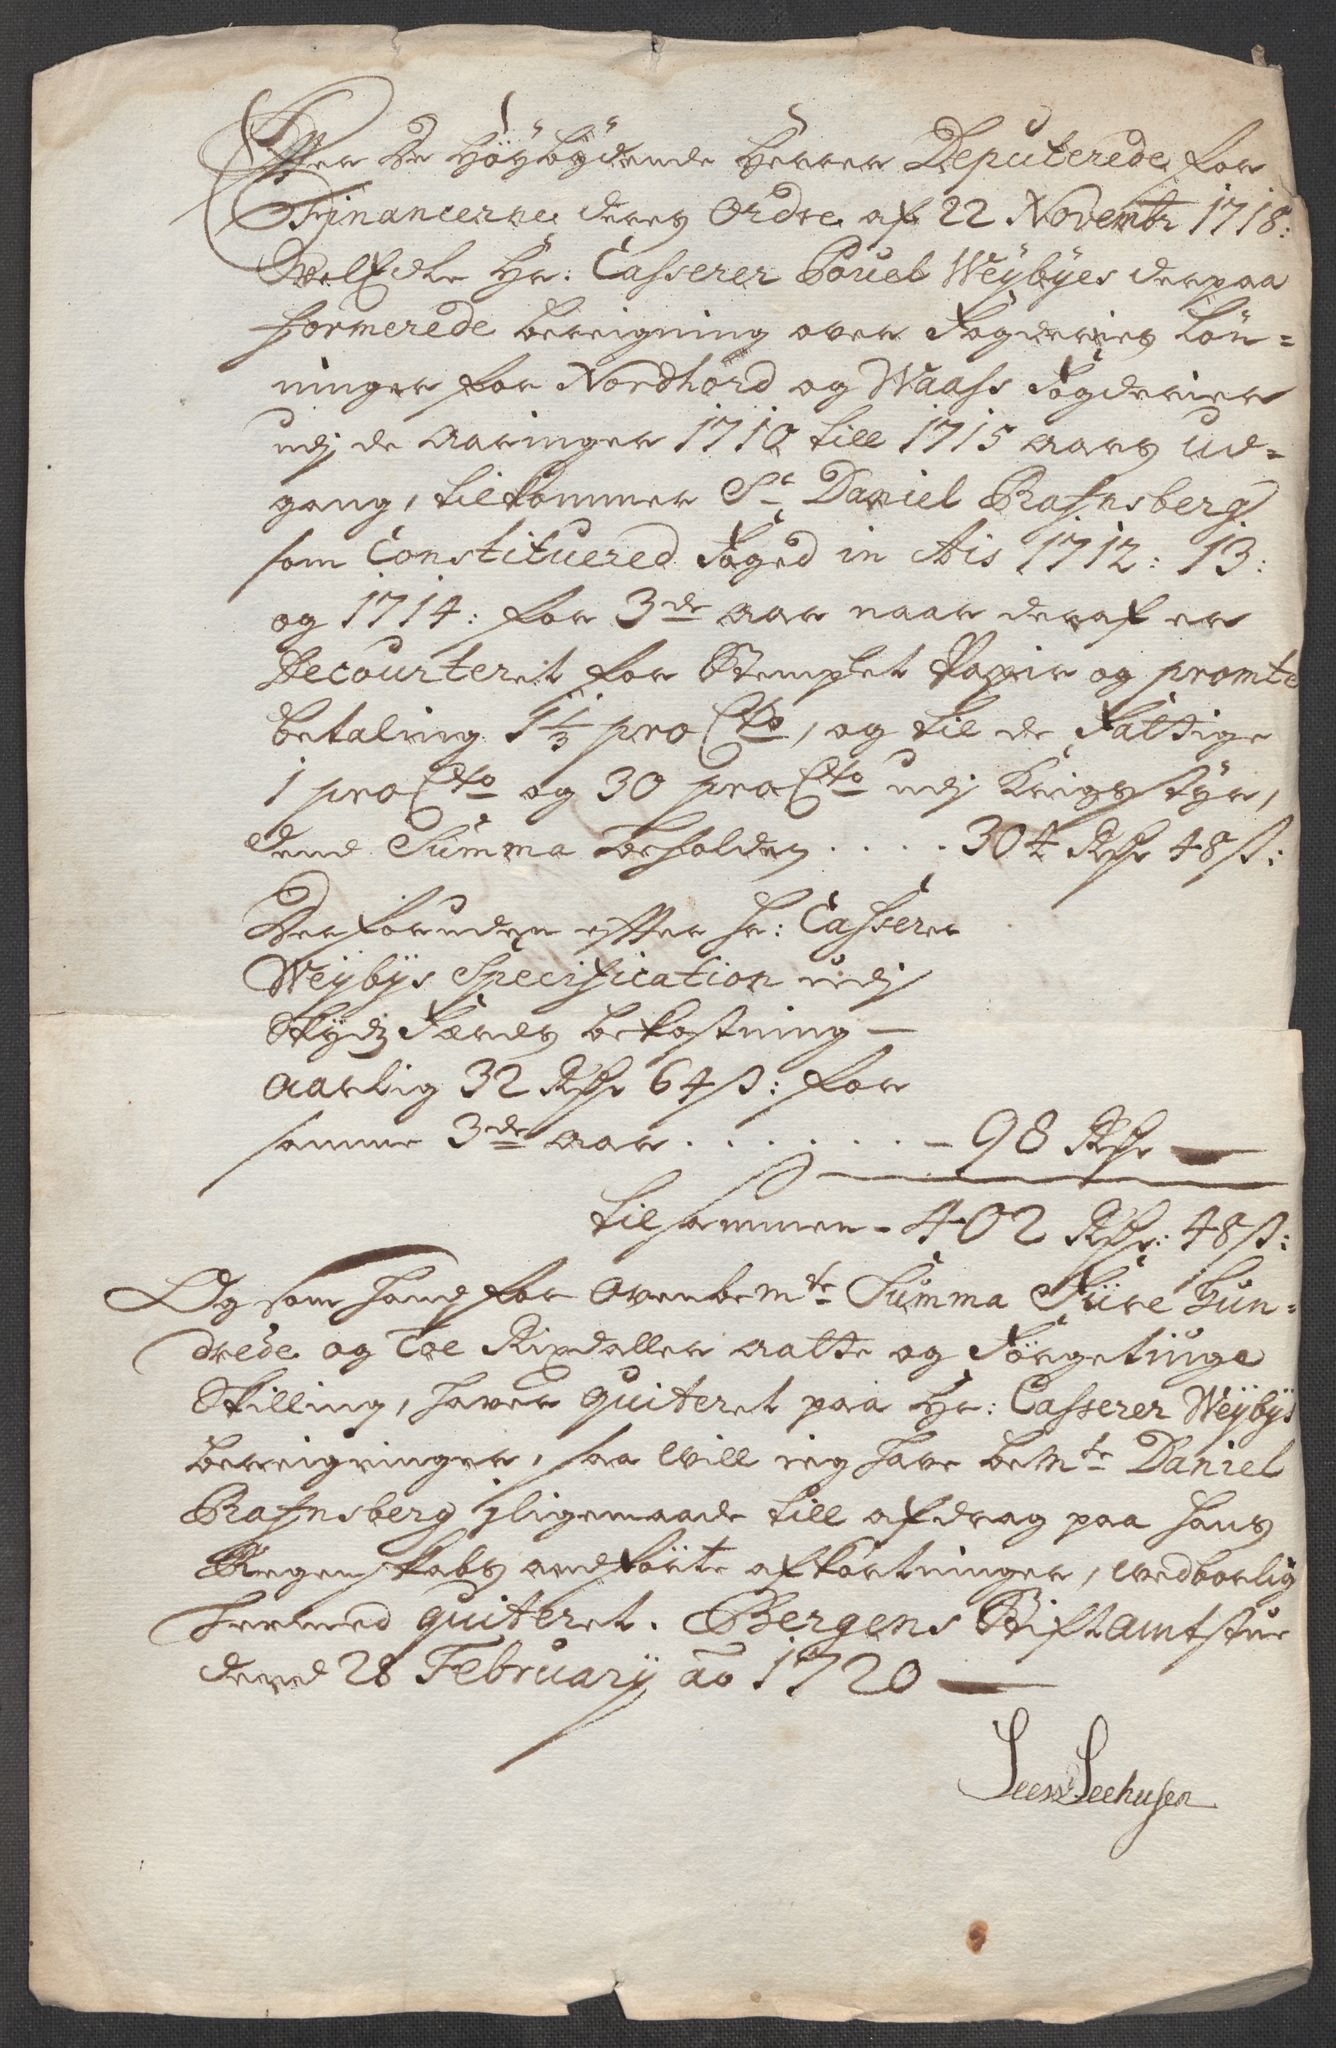 Effter De Höybydende Herrer Deputerede for
Financerne deres Ordre af 22 Novembr 1718:
Velædle Hr: Casserer Pouel Weybyes derpaa
formerede bereigning over Fogderies Lön=
ninger for Nordhörd og Waass Fogderier
udj de Aaringer 1710 till 1715 aars ud=
gang, tilkommer Sr Daniel Rafnsberg
som Constituered Foged in Ais 1712: 13:
og 1714: for 3de aar naar deraf er
Decourteret for Stemplet Papir og promte
betaling 1 1/3 pro Cto, og til de Fattige
1 pro Cto og 30 pro Cto udj Krigs styr,
dend Summa beholden . . . . 304 Rdr 48 s:
Derforuden effter Hr: Casserer
Weybys Specification udj
Skyds Færds bekostning —
Aarlig 32 Rdr 64 s: for
samme 3de aar . . . . . . . — 98 Rdr —
tilsammen – 402 Rdr: 48 s:
Og som hand for Ovenbemte Summa Fiire Hun=
drede og Toe Rixdaller aatte og Förgetiuge
Skilling, haver quiteret paa Hr: Casserer Weybys
bereigninger, saa vill ieg have bemte Daniel
Rafnsberg jligemaade till afdrag paa hans
Regenskabs andförte afkortninger, vedborlig
hermed quiteret. Bergens Stiftamtstue
dend 28 February ao 1720 —
Seehusen